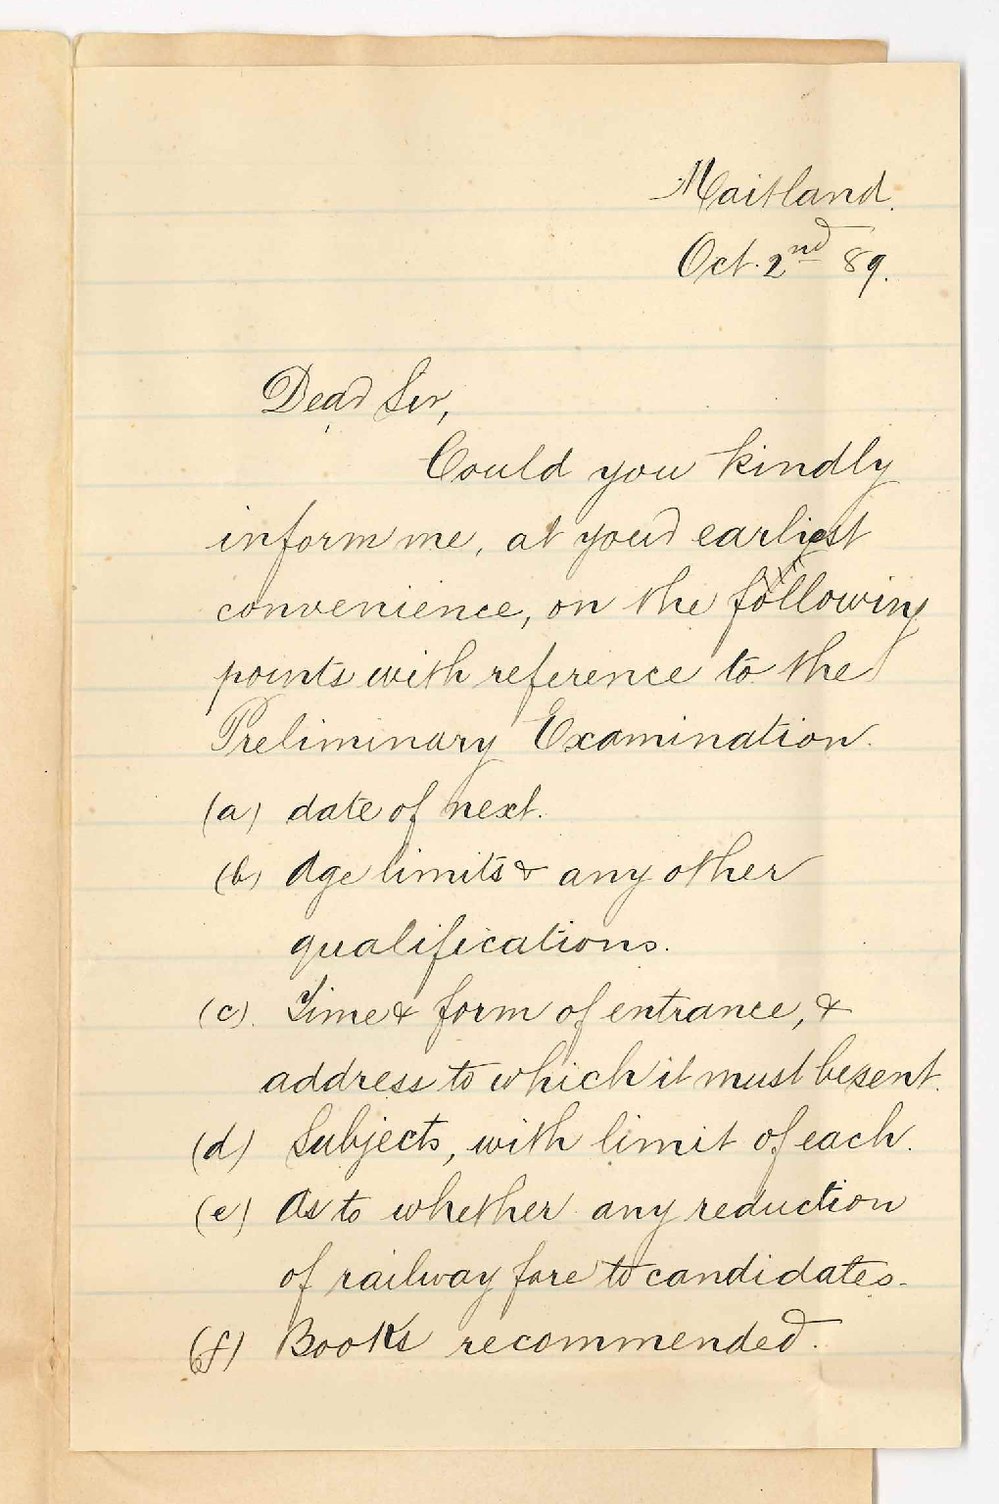 Maitland.
Oct. 2nd 89.
Dear Sir,
Could you kindly
inform me, at your earliest
convenience, on the following
points with reference to the
Preliminary Examination.
(a) date of next.
(b) Age limits & any other
qualifications.
(c). Time & form of entrance, &
address to which it must be sent.
(d) Subjects, with limit of each.
(e) As to whether any reduction
of railway fare to candidates.
(f) Books recommended.